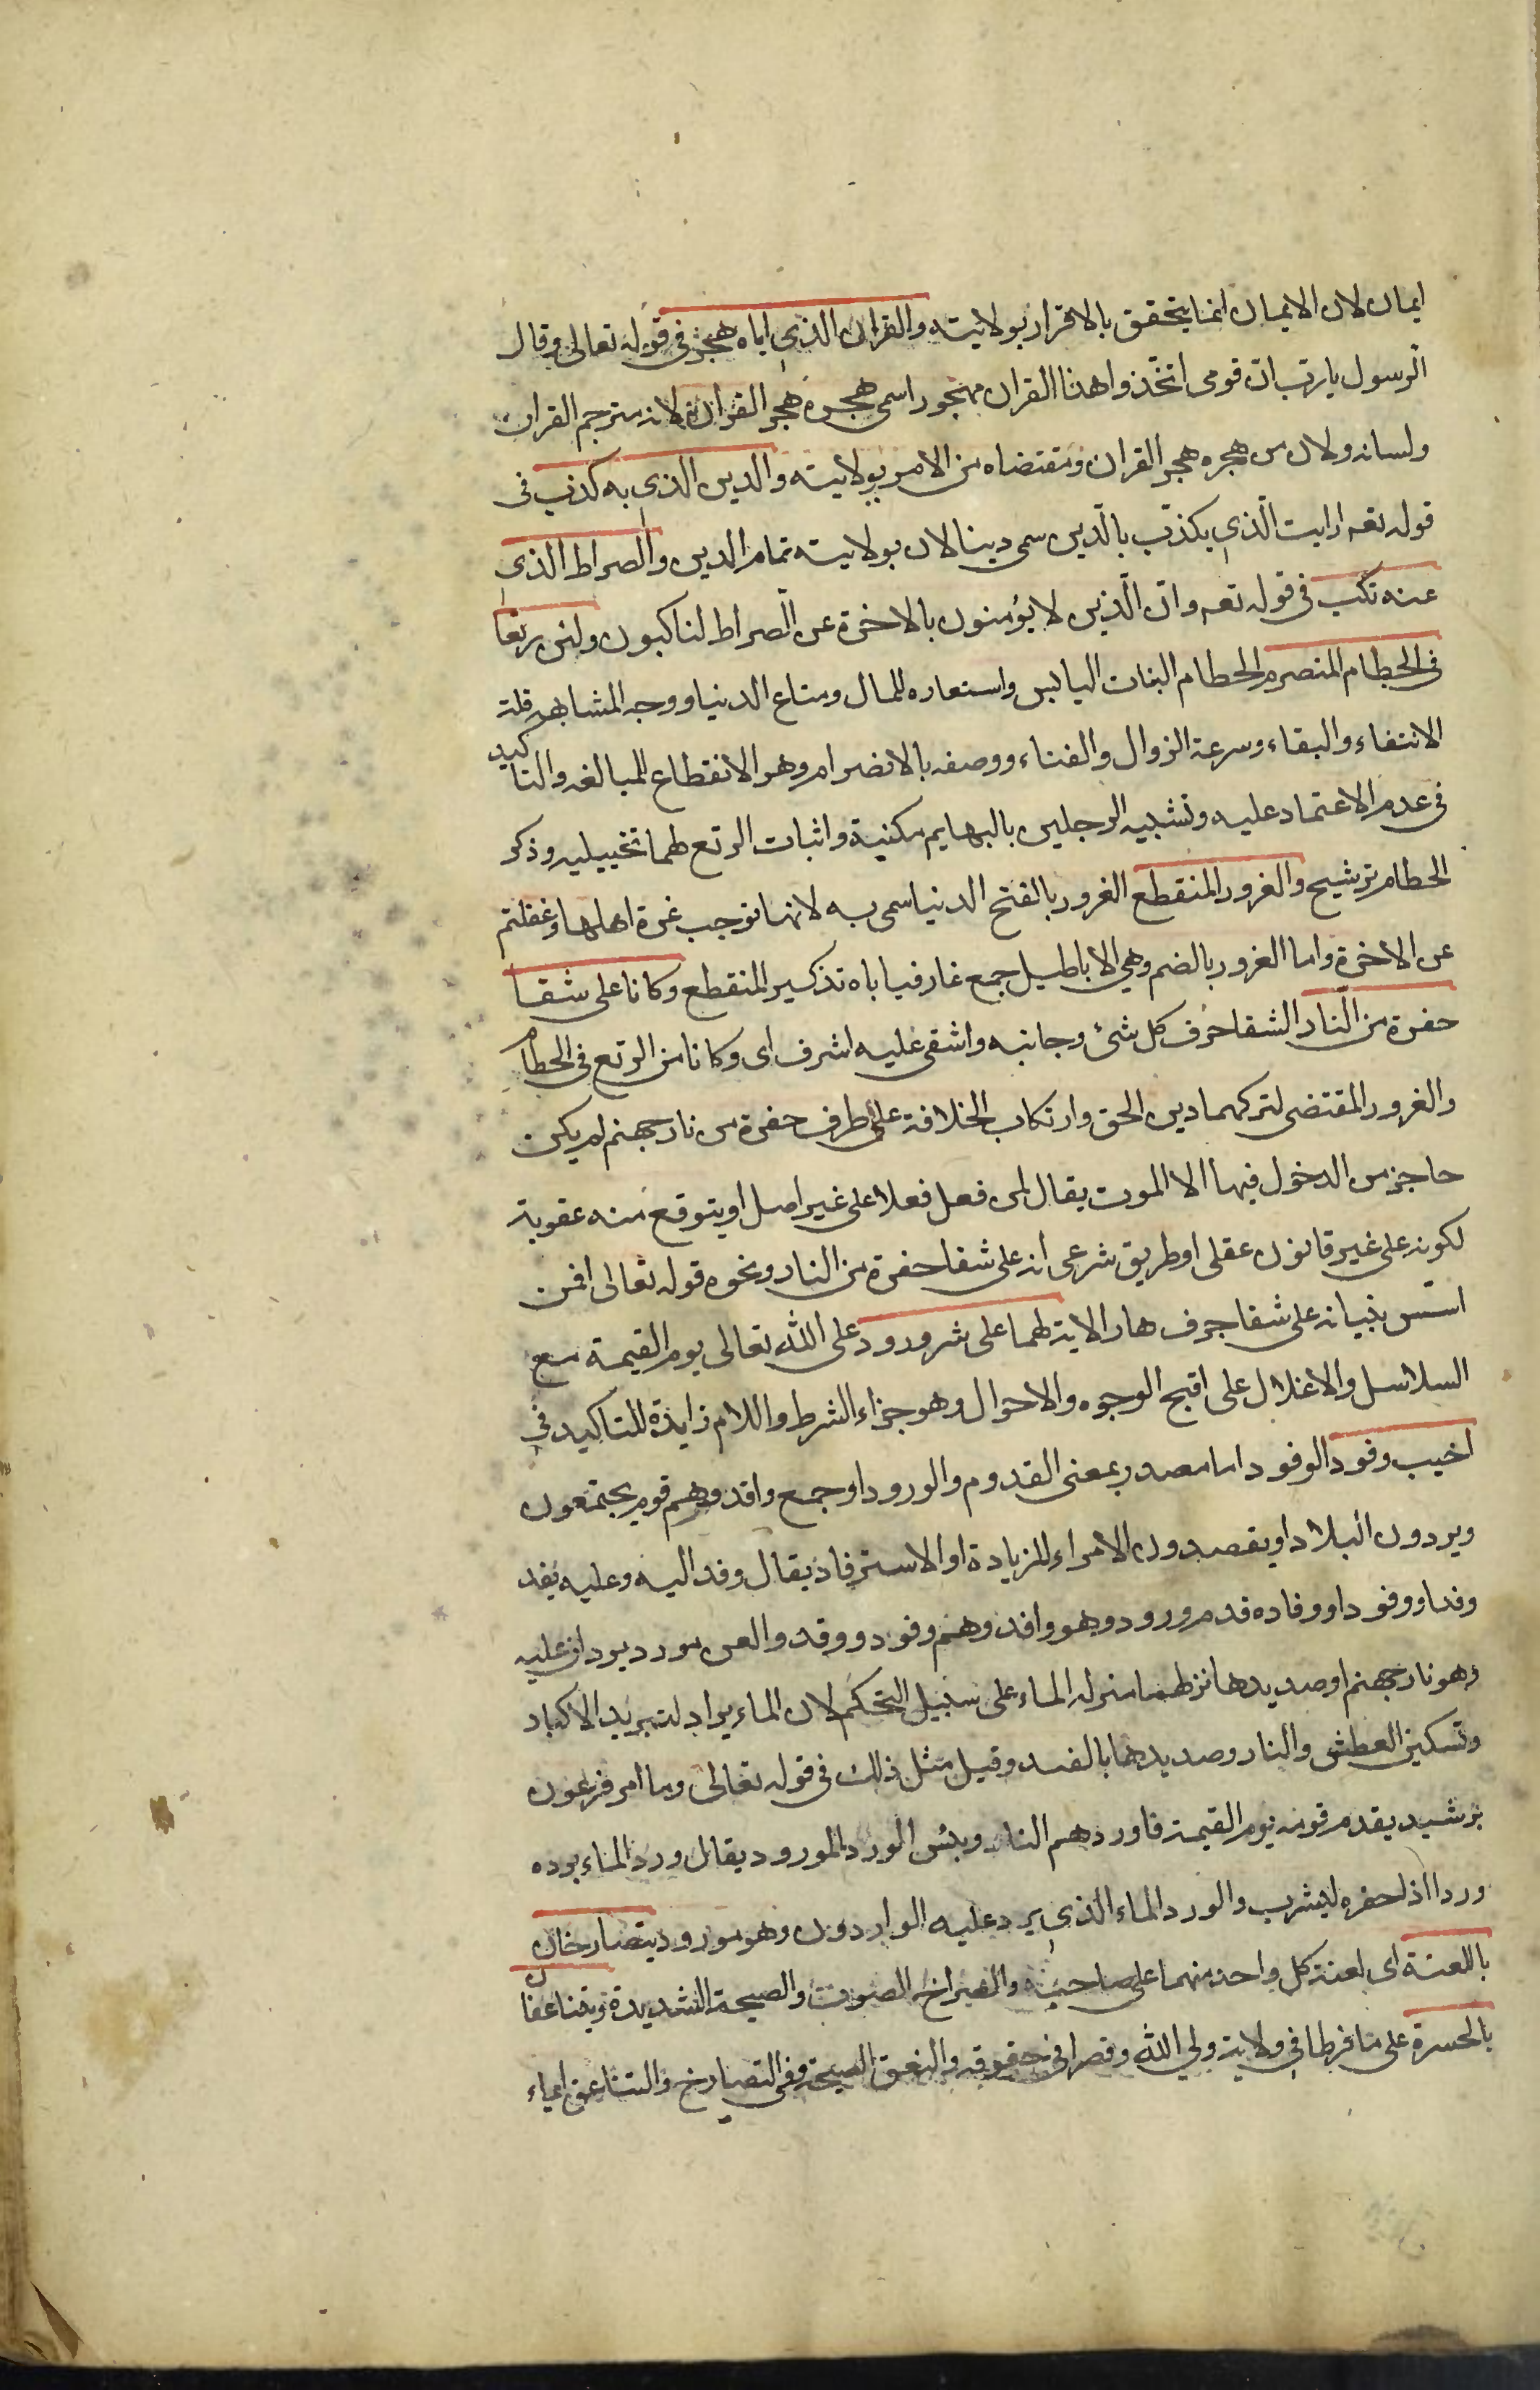 ايمان لان الايمان انما يتحقق بالاقرار بولايته والقران الذي اياه هجر في قوله تعالى وقال
الرسول يا ربّ انّ قومى اتخّذوا هذا القران مهجورا سمى هجره هجر القران لانه مترجم القران
ولسانه ولان من هجره هجر القران ومقتضاه من الامر بولايته والدين الذي به كذب فى
قوله تعه ارايت الّذي يكذّب بالّدين سمى دينا لان بولايته تمام الدين والصراط الذي
عنه نكب فى قوله تعه وانّ الّذين لا يؤمنون بالاخرة عن الصّراط لناكبون ولئن رتعا
فى الحطام المنصرم الحطام النبات اليابس واستعاره للمال ومتاع الدنيا ووجه المشابهه قلة
الانتفاء والبقاء وسرعة الزوال والفناء ووصفه بالانصرام وهو الانقطاع للمبالغه والتاكيد
فى عدم الاعتماد عليه وتشبيه الرجلين بالبهايم مكنية واثبات الرتع لهما تخييليه وذكر
الحطام ترشيح والغرور المنقطع الغرور بالفتح الدنيا سمى به لانها توجب غرة اهلها وغفلتم
عن الاخرة واما الغرور بالضم وهي الاباطيل جمع غار فياباه تذكير المنقطع وكانا على شفا
حفرة من النّار الشفا حرف كل شئ وجانبه واشفى عليه اشرف اى وكانا من الرتع فى الحطام
والغرور المقتضى لتركهما دين الحق وارتكاب الخلافة على طرف حفرة من نار جهنم لم يكن
حاجز من الدخول فيها الا الموت يقال لمن فعل فعلا على غير اصل او يتوقع منه عقوبة
لكونه على غير قانون عقلى او طريق شرعى انه على شفا حفرة من النار ونحوه قوله تعالى افمن
اسّس بنيانه على شفا جرف هار الاية لهما على شر ورود على الله تعالى يوم القيمة مع
السلاسل والاغلال على اقبح الوجوه والاحوال وهو جزاء الشرط واللام زايدة للتاكيد فى
اخيب وفود الوفود اما مصدر بمعنى القدوم والورود او جمع وافد وهم قوم يجتمعون
ويردون البلاد او يقصدون الامراء للزيادة او الاسترفاد يقال وفد اليه وعليه يفد
وفدا ووفودا ووفاده قدم وورود وهو وافد وهم وفود ووفد والعن مورد يردان عليه
وهو نار جهنم او صديدها نزلهما منزله الماء على سبيل التحكم لان الماء يراد لتبريد الاكباد
وتسكين العطش والنار وصديدهما بالضد وقيل مثل ذلك فى قوله تعالى وما امر فرعون
برشيد يقدم قومه يوم القيمة فاوردهم النار وبئس الورد المورود يقال ورد الماء يرده
وردا اذا حفره ليشرب والورد الماء الذي يرد عليه الواردون وهو مورود يتصارخان
باللعنة اى لعنة كل واحد منهما على صاحبه والصراخ الصوت والصيحة الشديدة ويتناعقان
بالحسرة على ما فرطا في ولاية ولي الله وقصرا في حقوقه والنعق الصيحة وفى التصارخ والتناعق ايماء